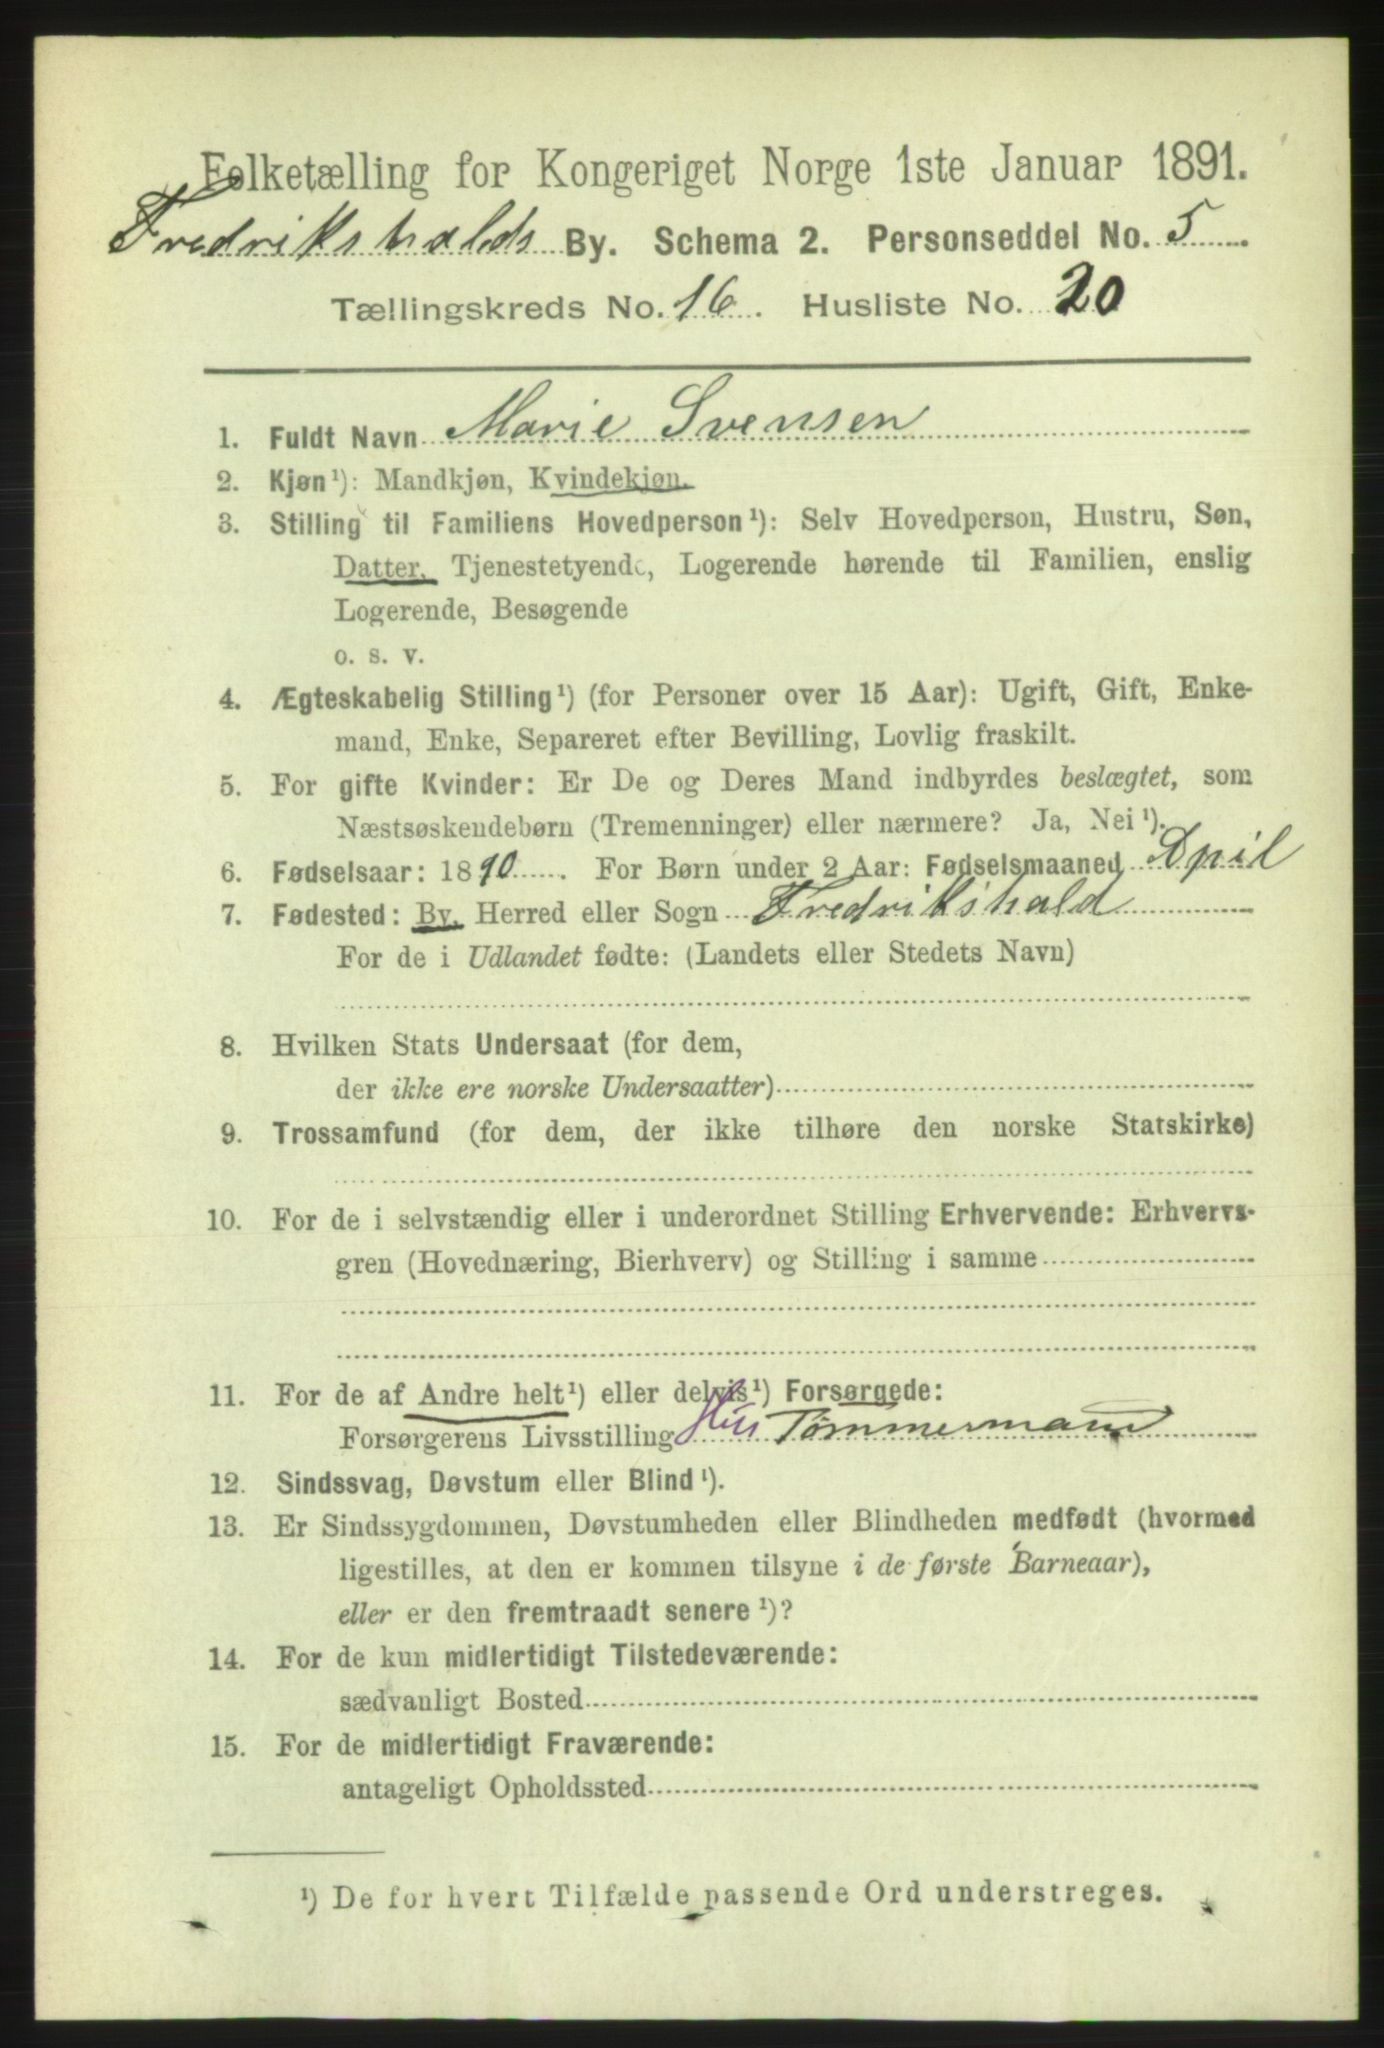 Folketælling for Kongeriget Norge 1ste Januar 1891.
Fredrikshalds By. Schema 2. Personseddel No. 5
Tællingskreds No. 16. Husliste No. 20
1. Fuldt Navn Marie Svensen
2. Kjøn¹): Mandkjøn, Kvindekjøn.
3. Stilling til Familiens Hovedperson¹): Selv Hovedperson, Hustru, Søn,
Datter, Tjenestetyende, Logerende hørende til Familien, enslig
Logerende, Besøgende
o. s. v.
4. Ægteskabelig Stilling¹) (for Personer over 15 Aar): Ugift, Gift, Enke-
mand, Enke, Separeret efter Bevilling, Lovlig fraskilt.
5. For gifte Kvinder: Er De og Deres Mand indbyrdes beslægtet, som
Næstsøskendebørn (Tremenninger) eller nærmere? Ja, Nei¹).
6. Fødselsaar: 1890. For Børn under 2 Aar: Fødselsmaaned April
7. Fødested: By, Herred eller Sogn Fredrikshald
For de i Udlandet fødte: (Landets eller Stedets Navn)
8. Hvilken Stats Undersaat (for dem,
der ikke ere norske Undersaatter)
9. Trossamfund (for dem, der ikke tilhøre den norske Statskirke)
10. For de i selvstændig eller i underordnet Stilling Erhvervende: Erhvervs-
gren (Hovednæring, Bierhverv) og Stilling i samme
11. For de af Andre helt¹) eller delvis¹) Forsørgede:
Forsørgerens Livsstilling Hus Tømmermand
12. Sindssvag, Døvstum eller Blind¹).
13. Er Sindssygdommen, Døvstumheden eller Blindheden medfødt (hvormed
ligestilles, at den er kommen tilsyne i de første Barneaar),
eller er den fremtraadt senere¹)?
14. For de kun midlertidigt Tilstedeværende:
sædvanligt Bosted
15. For de midlertidigt Fraværende:
antageligt Opholdssted
¹) De for hvert Tilfælde passende Ord understreges.